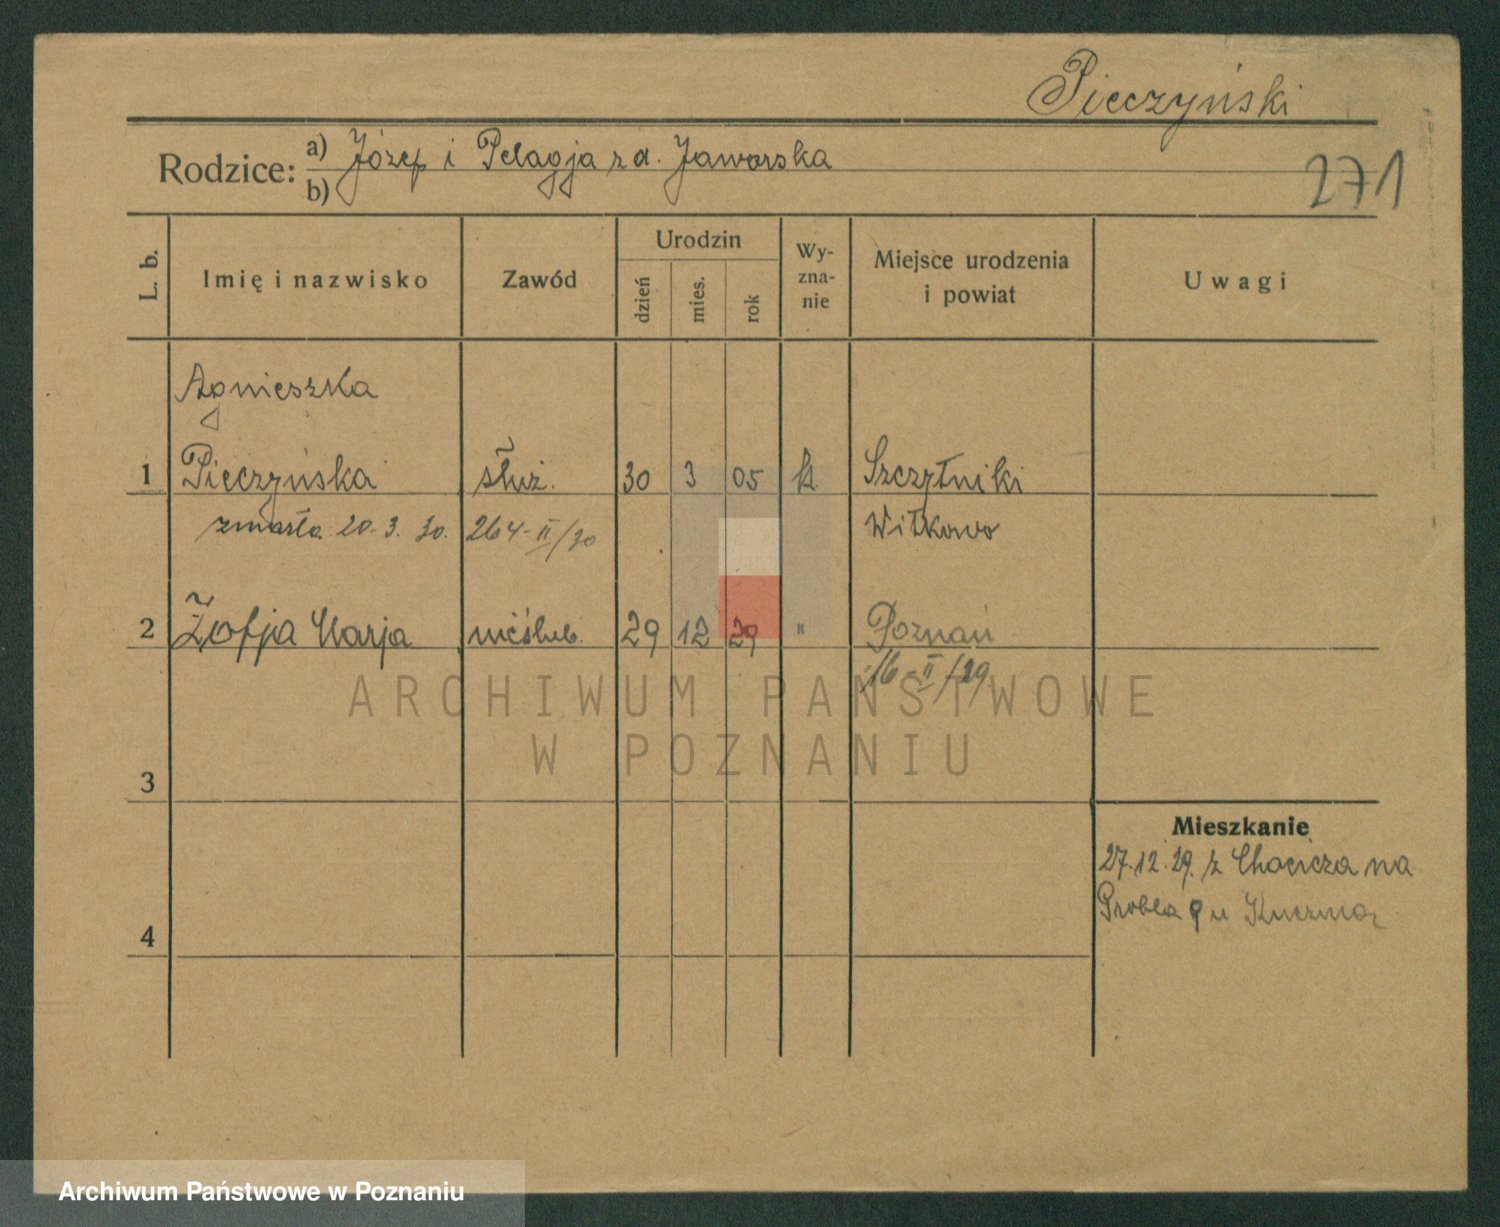 Pieczyński
Rodzice: a) Józef i Pelagja zd. Jaworska
b)
271
L. b.
Imię i nazwisko
Zawód
Urodzin
dzień
mies.
rok
Wy-
zna-
nie
Miejsce urodzenia
i powiat
Uwagi
Agnieszka
1 Pieczyńska służ. 30 3 05 k. Szczytniki
zmarła 20.3.30. 264-II/30 Witkowo
2 Zofja Marja nieślub. 29 12 29 " Poznań
16-II/29
ARCHIWUM PAŃSTWOWE
W POZNANIU
3
Mieszkanie
27.12.29. z Chocicza na
4
u Kuczma
Archiwum Państwowe w Poznaniu